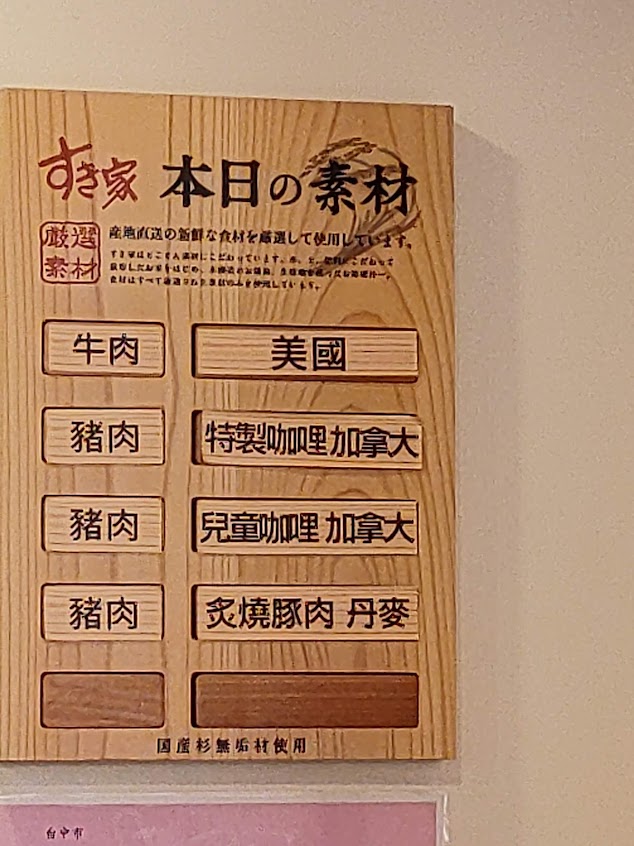 すき家 本日の素材
厳選
素材
産地直送の新鮮な食材を厳選して使用しています。
牛肉 美國
豬肉 特製咖哩加拿大
豬肉 兒童咖哩 加拿大
豬肉 炙燒豚肉 丹麥
国産杉無垢材使用
台中市